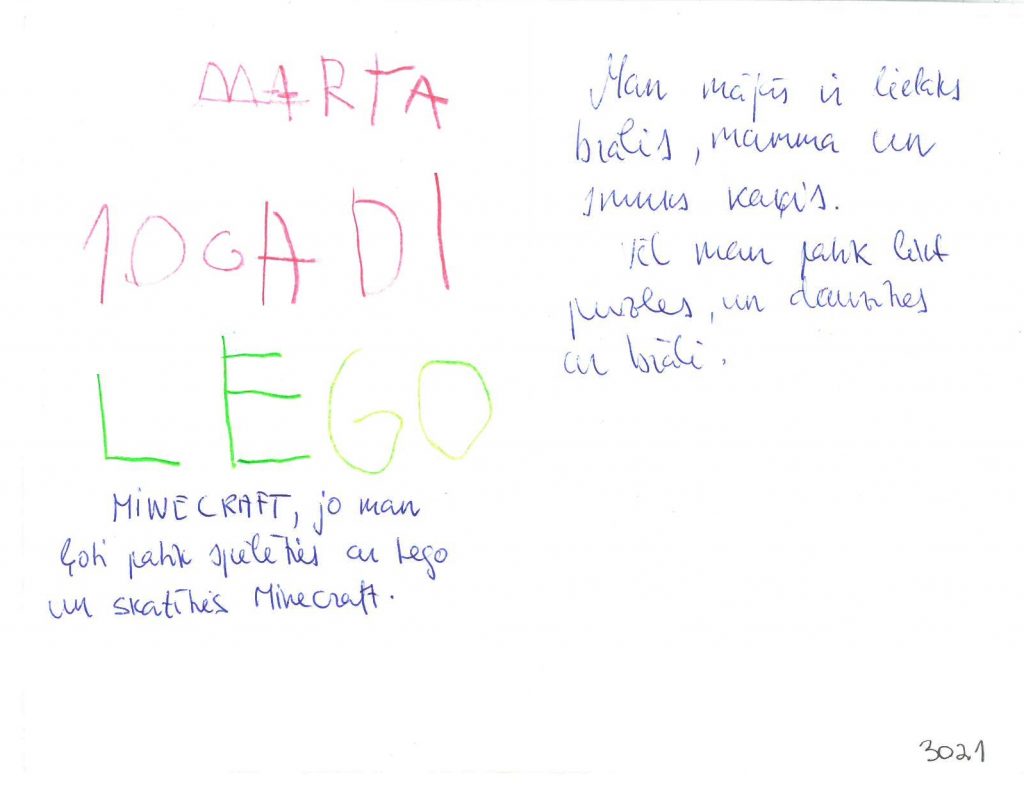 MARTA
10 GADI
LEGO
MINECRAFT, jo man
ļoti patīk spēlēties ar Lego
un skatīties Minecraft.
Man mājās ir lielāks
brālis, mamma un
smuks kaķis.
Vēl man patīk likt
puzles, un dauzīties
ar brāli.
3021